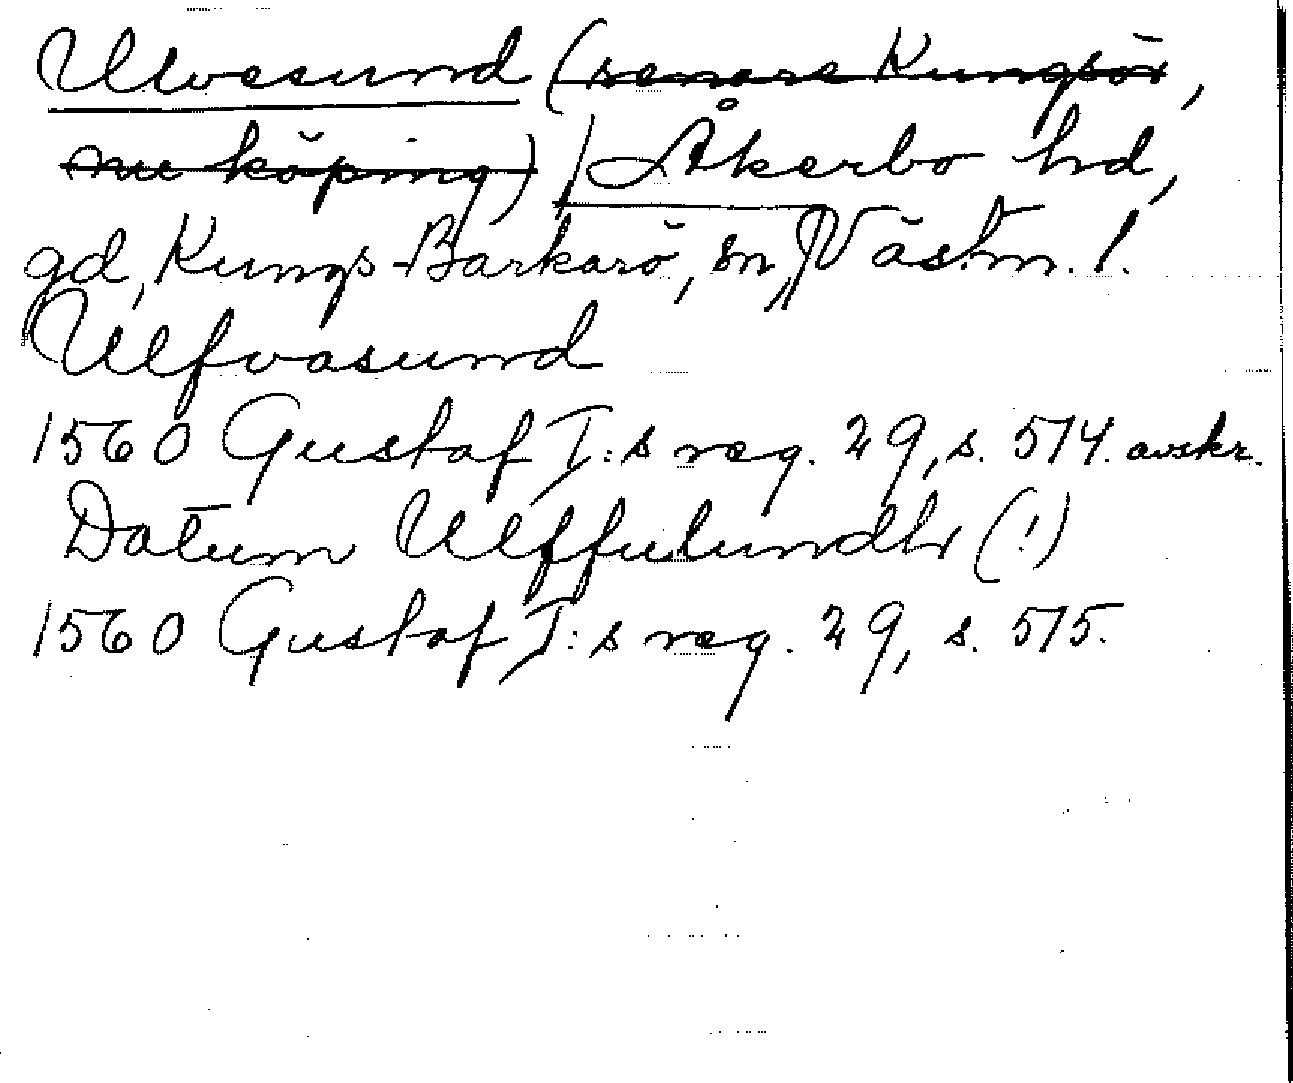 Ulvesund (senare Kungsör,
nu köping) Åkerbo hd,
gd, Kungs-Barkarö, sn, Västm. l.
Ulfvasund
1560 Gustaf I:s reg. 29, s. 514. avskr.
Datum Ulffulundh (!)
1560 Gustaf I:s reg. 29, s. 515.